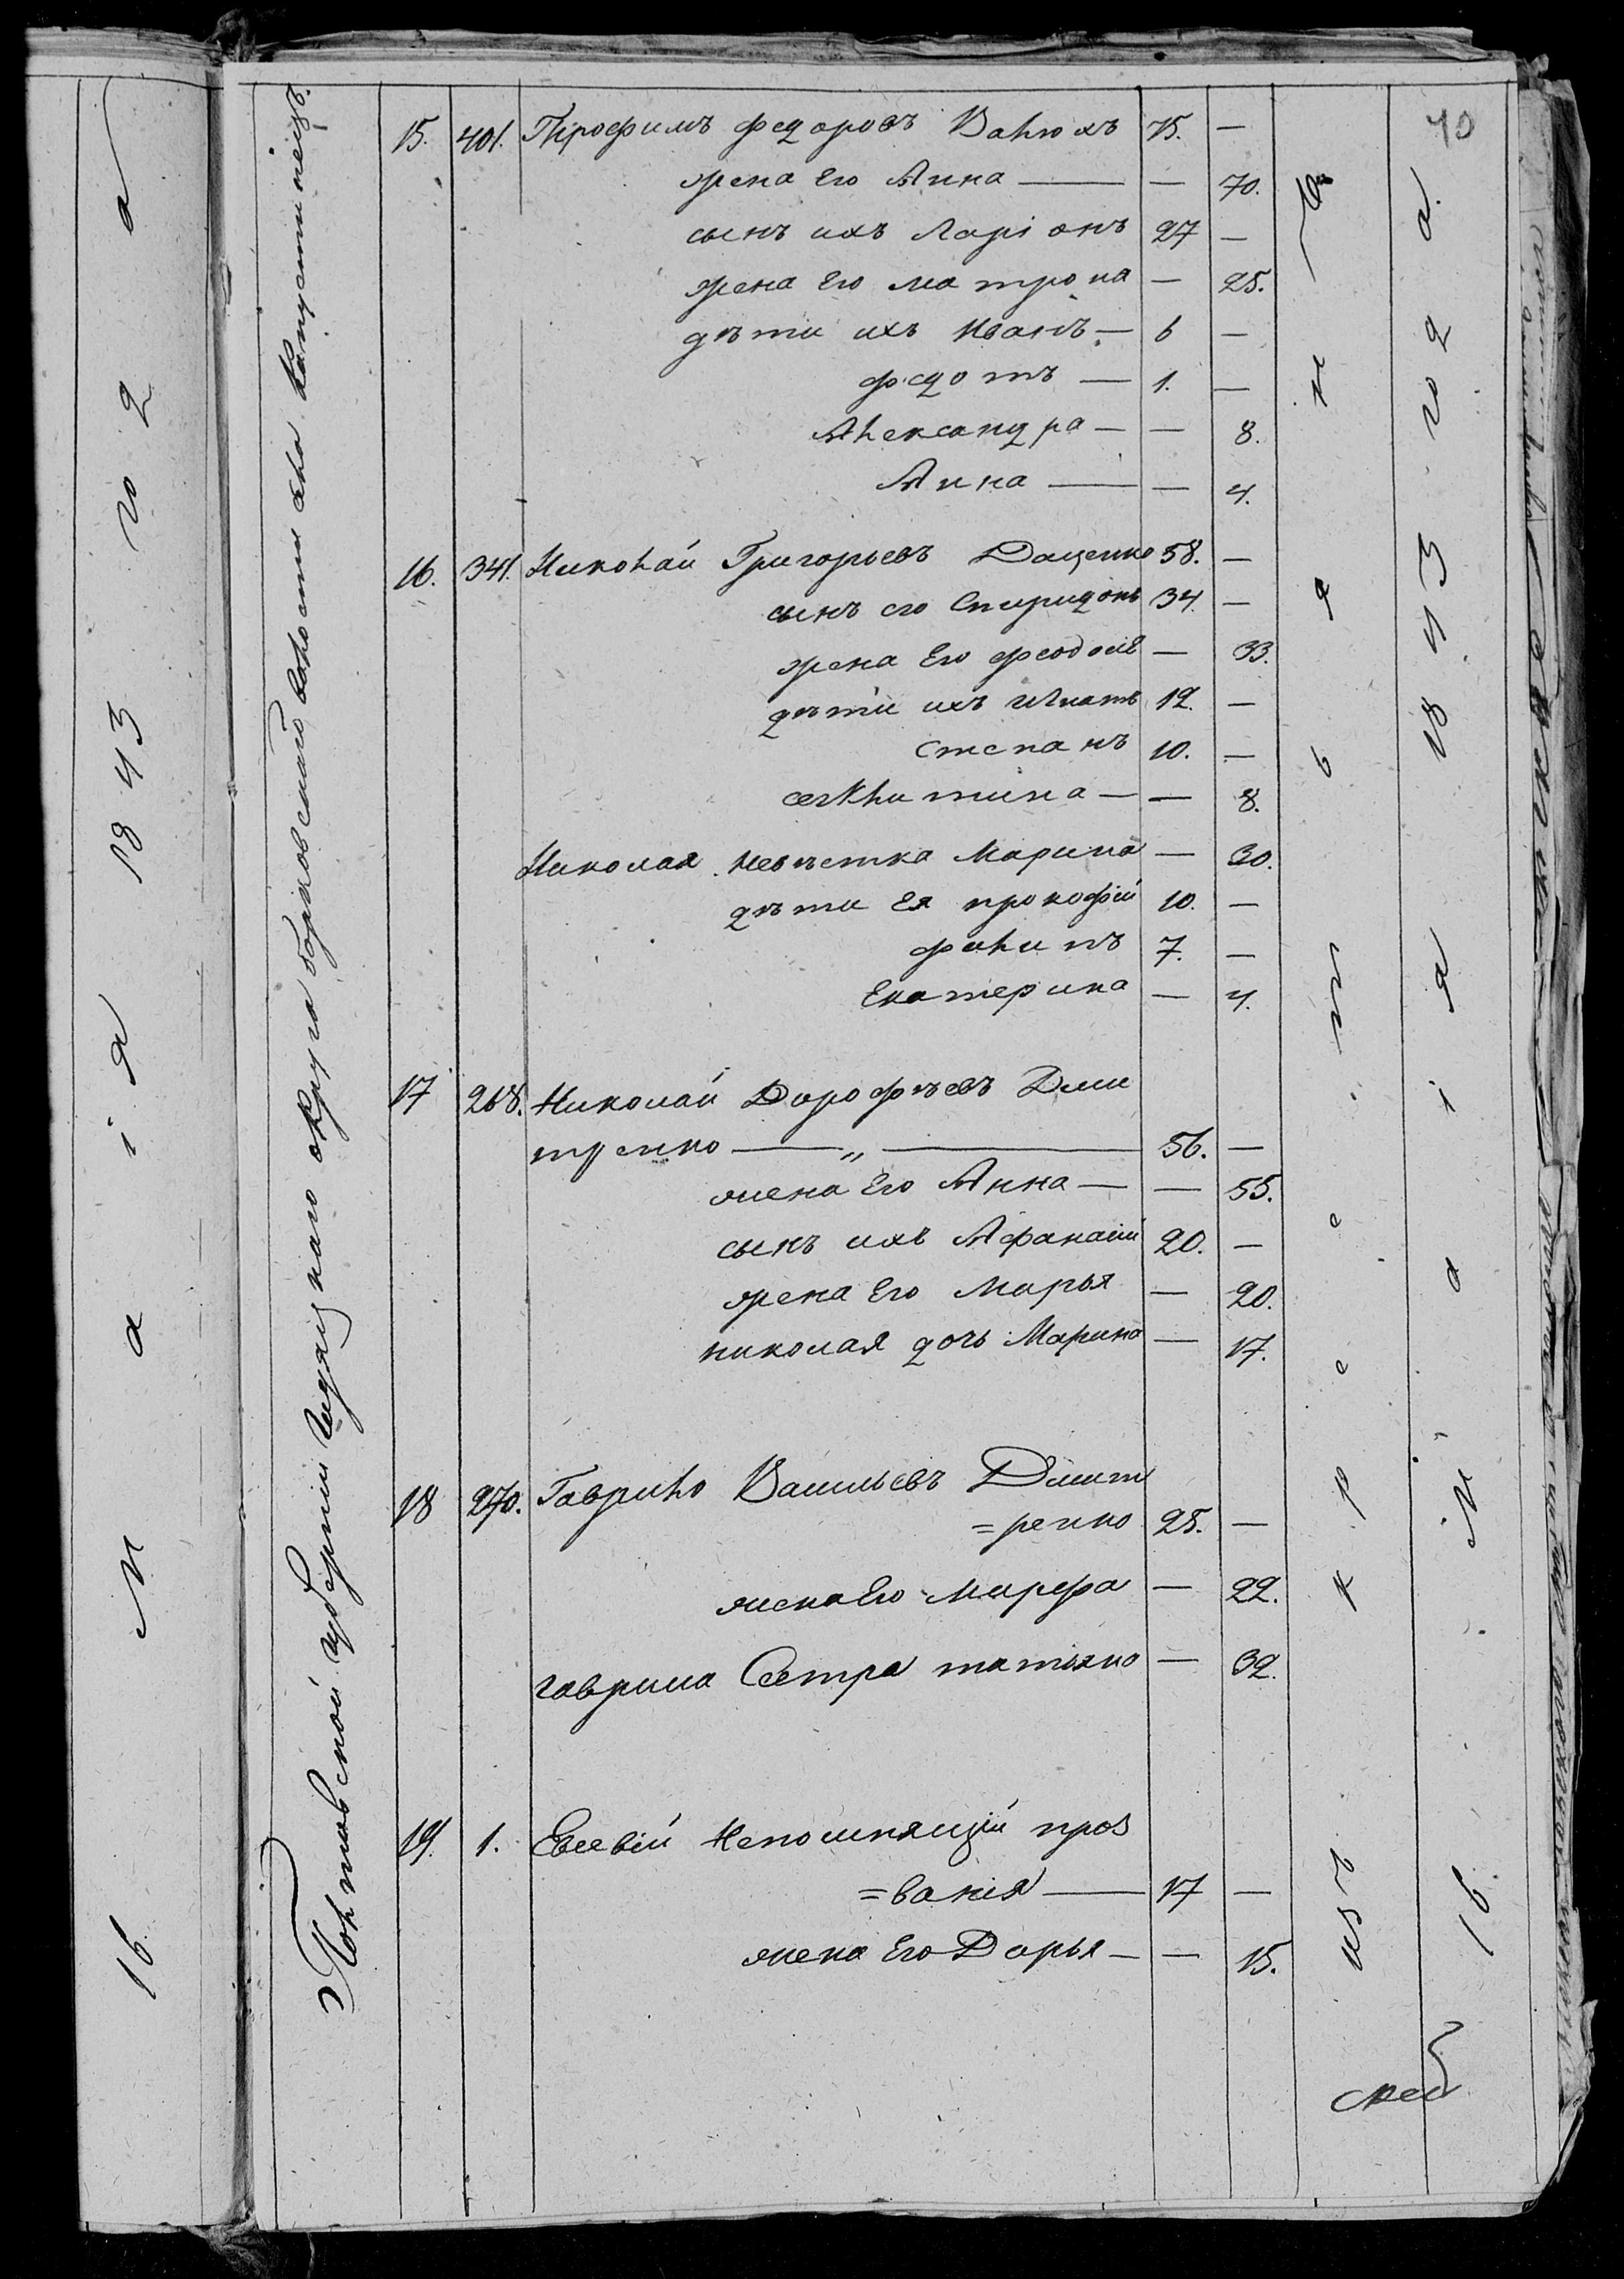 70
15. 401. Трофимъ федоровъ Валюхъ 75. —
жена Его Анна — — 70.
сынъ ихъ Ларіонъ 27 —
жена Его матрона — 25.
дѣти ихъ Иванъ — 6 —
федотъ — 1. —
Александра — — 8.
Анна — — 4.
16. 341. Николай Григорьевъ Даценко 58. —
сынъ его Спиридонъ 34. —
жена Его феодосія — 33.
дѣти ихъ Игнатъ 12. —
степанъ 10. —
— — 8.
Николая невѣстка Марина — 30.
дѣти Ея прокофій 10. —
филипъ 7. —
Екатерина — 4.
17 268. Николай Дорофѣевъ Дми
тренко — „ — 56. —
жена Его Анна — — 55.
сынъ ихъ Афанасій 20. —
жена Его Марья — 20.
николая дочь Марина — 17.
18 270. Гаврило Васильевъ Дмит
=ренко 28. —
жена Его Марфа — 22.
гаврила Сестра татіяна — 32.
19. 1. Евсевій Непомнящій проз
=ванія — 17 —
жена Его Дарья — — 15.
Полтавской губерніи Гадяцкаго округа борковской волости села Капустинецъ.
изъ крестьянъ
16 Маія 1843 года
16. Маія 1843 года.